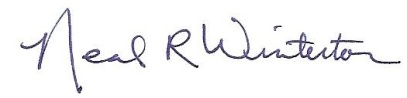 Neal R Winterton